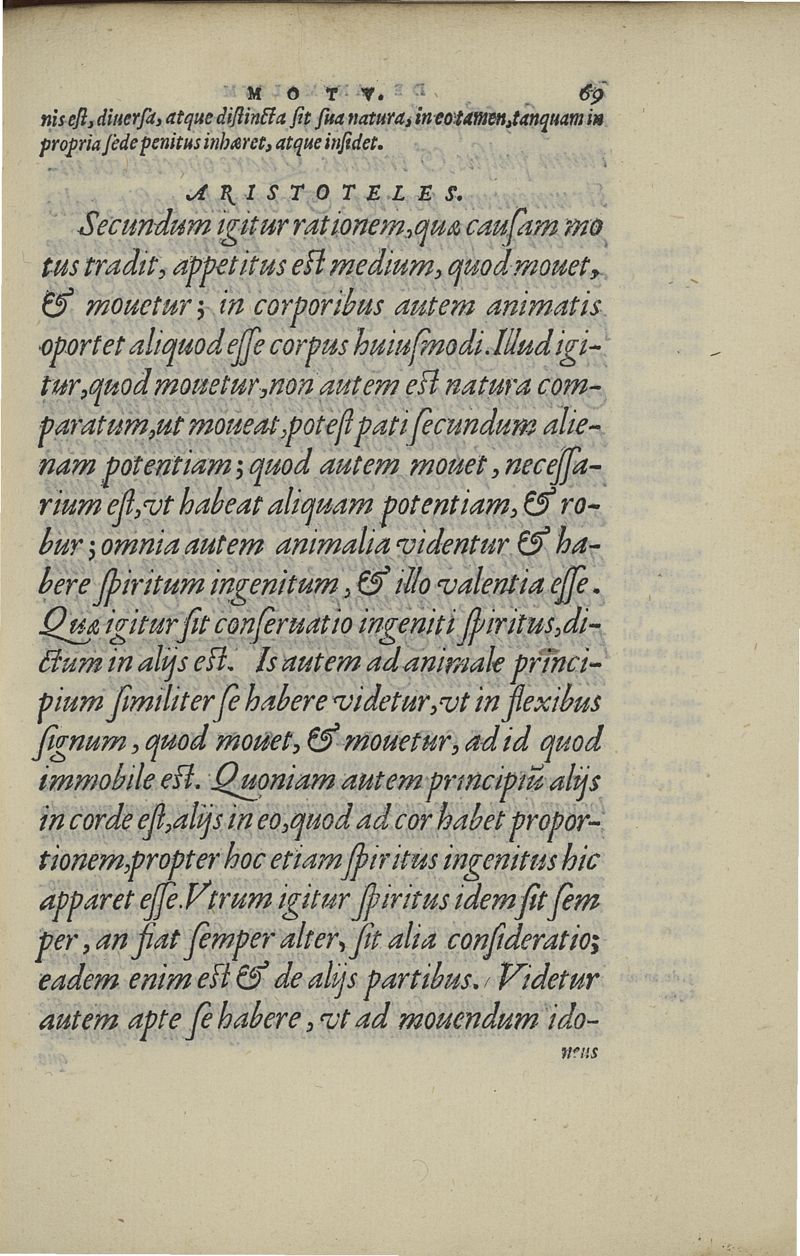 MOTV. 69
nis eſt, diuerſa, atque diſtincta ſit ſua natura, in eo tamen, tanquam in
propria ſede penitus inhæret, atque inſidet.
ARISTOTELES.
Secundum igitur rationem, quæ cauſam mo
tus tradit, appetitus eſt medium, quod mouet,
& mouetur; in corporibus autem animatis
oportet aliquod eſſe corpus huiuſmodi. Illud igi-
tur, quod mouetur, non autem eſt natura com-
paratum, ut moueat, poteſt pati ſecundum alie-
nam potentiam; quod autem mouet, neceſſa-
rium eſt, vt habeat aliquam potentiam, & ro-
bur; omnia autem animalia videntur & ha-
bere ſpiritum ingenitum, & illo valentia eſſe.
Quæ igitur ſit conſeruatio ingeniti ſpiritus, di-
ctum in alijs eſt. Is autem ad animale princi-
pium ſimiliter ſe habere videtur, vt in flexibus
ſignum, quod mouet, & mouetur, ad id quod
immobile eſt. Quoniam autem principiū alijs
in corde eſt, alijs in eo, quod ad cor habet propor-
tionem, propter hoc etiam ſpiritus ingenitus hic
apparet eſſe. Vtrum igitur ſpiritus idem ſit ſem
per, an fiat ſemper alter, ſit alia conſideratio;
eadem enim eſt & de alijs partibus. Videtur
autem apte ſe habere, vt ad mouendum ido-
neus